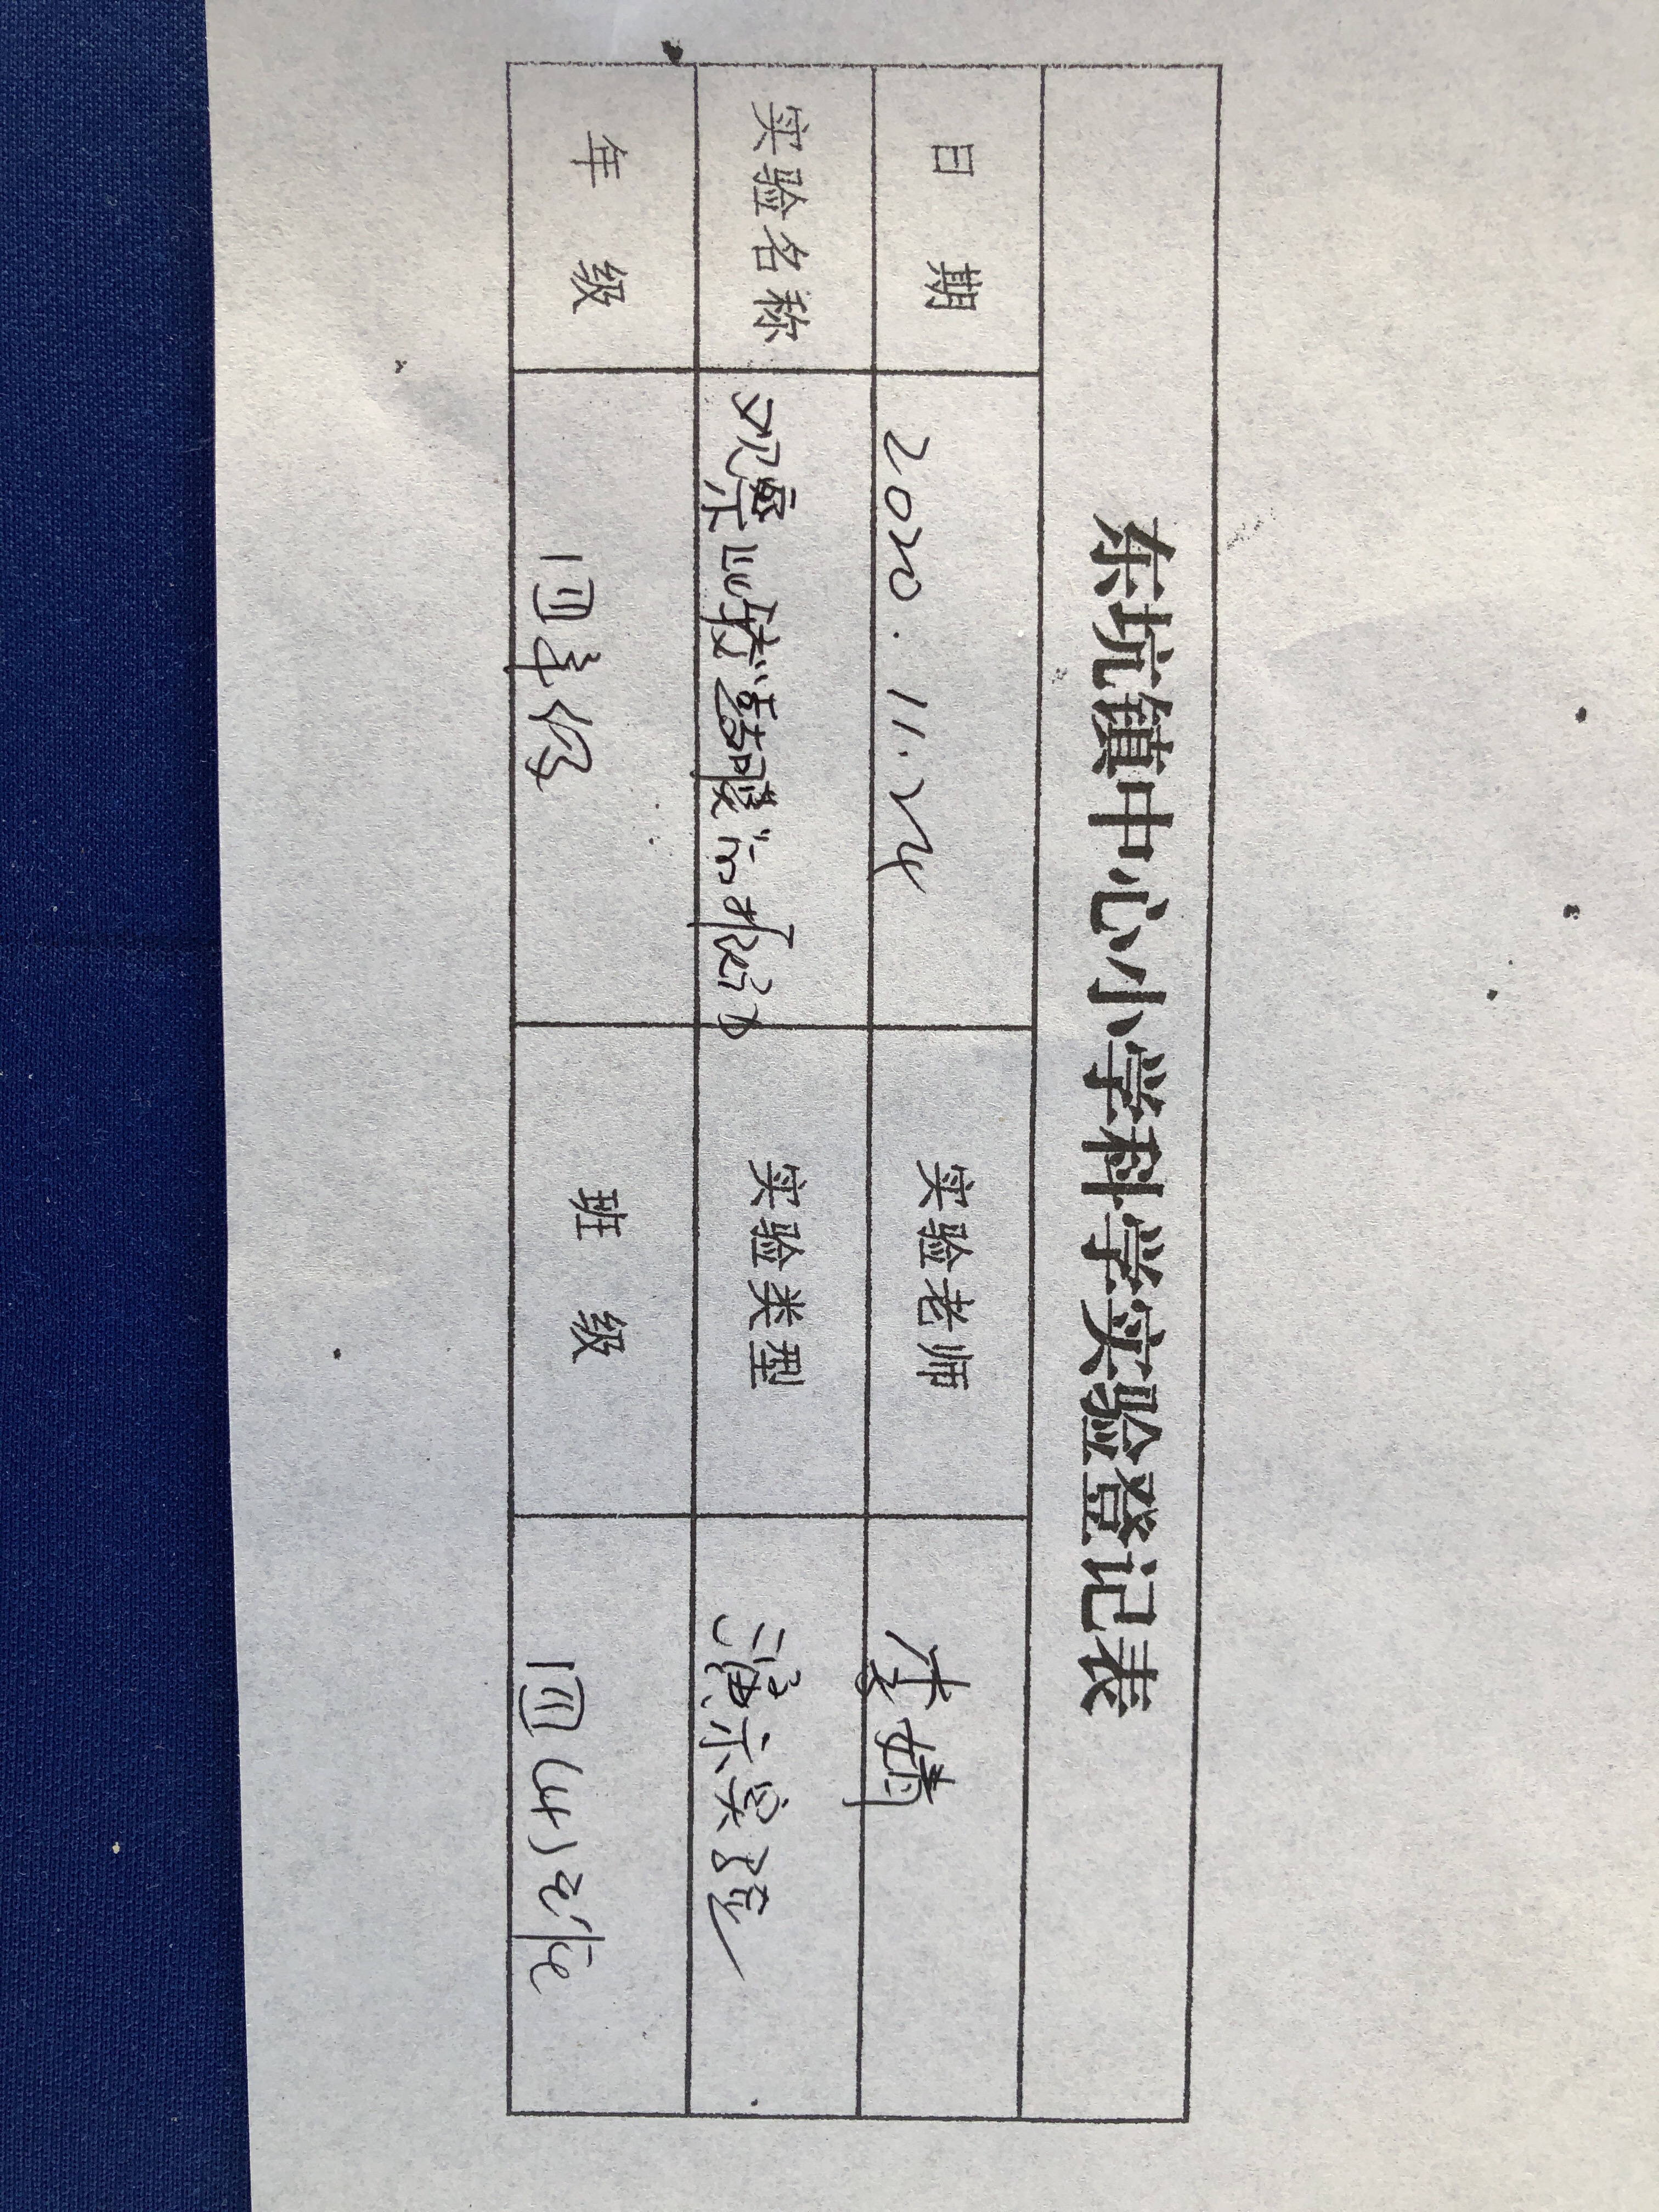 东坑镇中心小学科学实验登记表
日 期 2020.11.24 实验老师 李婧
实验名称 观察比较"鼓膜"的振动 实验类型 演示实验
年 级 四年级 班 级 四(4)班